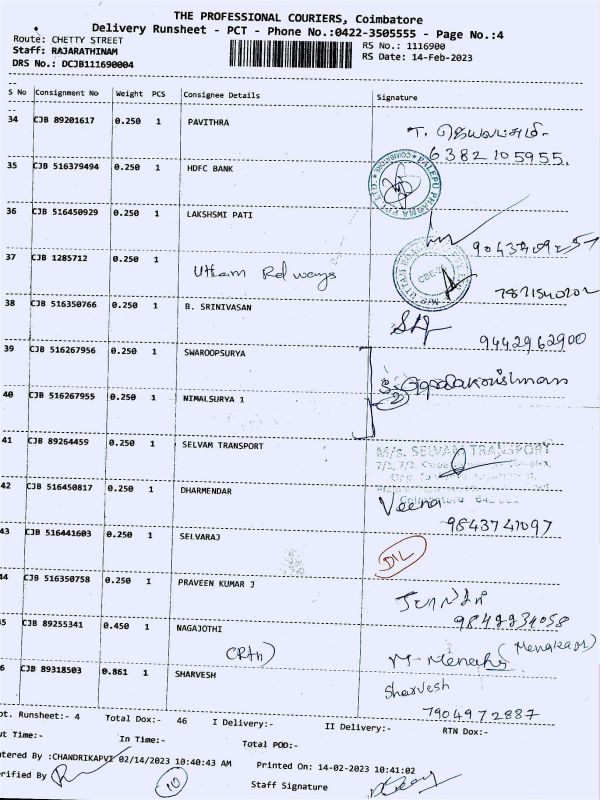 THE PROFESSIONAL COURIERS, Coimbatore
Delivery Runsheet - PCT - Phone No.:0422-3505555 - Page No.:4
Route: CHETTY STREET
RS No.: 1116900
Staff: RAJARATHINAM
RS Date: 14-Feb-2023
DRS No.: DCJB111690004
S No Consignment No Weight PCS Consignee Details Signature
34 CJB 89201617 0.250 1 PAVITHRA
6382105955.
35 CJB 516379494 0.250 1 HDFC BANK
36 CJB 516450929 0.250 1 LAKSHSMI PATI
37 CJB 1285712 0.250 1
Uttam Rolways
38 CJB 516350766 0.250 1 B. SRINIVASAN
9442962900
39 CJB 516267956 0.250 1 SWAROOPSURYA
40 CJB 516267955 0.250 1 NIMALSURYA 1
41 CJB 89264459 0.250 1 SELVAM TRANSPORT
M/s. SELVAM TRANSPORT
Coimbatore
42 CJB 516450817 0.250 1 DHARMENDAR
Veena
9843741097
43 CJB 516441603 0.250 1 SELVARAJ
DIL
44 CJB 516350758 0.250 1 PRAVEEN KUMAR J
45 CJB 89255341 0.450 1 NAGAJOTHI
46 CJB 89318503 0.861 1 SHARVESH
Sharvesh
7904972887
Tot. Runsheet:- 4 Total Dox:- 46 I Delivery:- II Delivery:- RTN Dox:-
Out Time:- In Time:- Total POD:-
Entered By :CHANDRIKAPVI 02/14/2023 10:40:43 AM Printed On: 14-02-2023 10:41:02
Verified By 10 Staff Signature